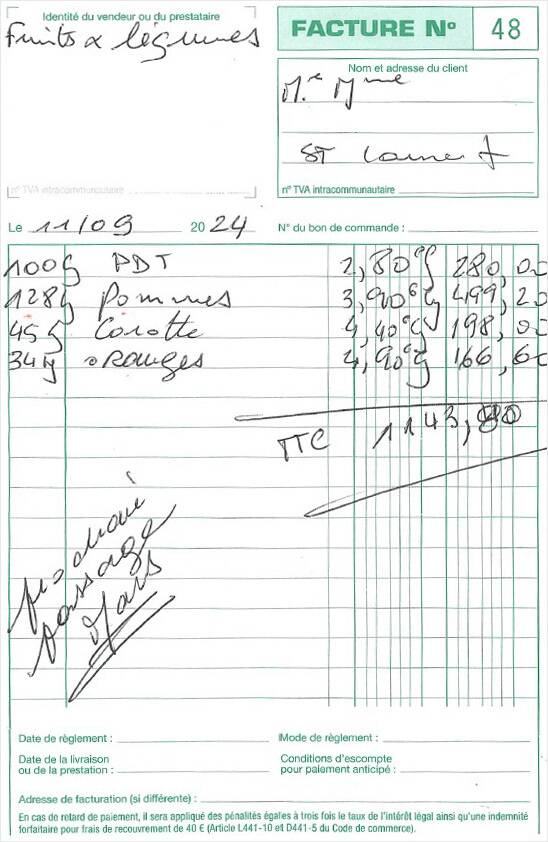 Identité du vendeur ou du prestataire
Fruits & légumes
n° TVA intracommunautaire
FACTURE N° 48
Nom et adresse du client
Mr Mme
ST Laurent
n° TVA intracommunautaire
Le 11/09 2024 N° du bon de commande :
100g PDT 2,80 280,00
128g Pommes 3,90 499,20
45g Carotte 4,40 198,00
34g oranges 4,90 166,60
TTC 1143,80
prochain
passage
Mars
Date de règlement : Mode de règlement :
Date de la livraison
ou de la prestation :
Conditions d'escompte
pour paiement anticipé :
Adresse de facturation (si différente) :
En cas de retard de paiement, il sera appliqué des pénalités égales à trois fois le taux de l'intérêt légal ainsi qu'une indemnité
forfaitaire pour frais de recouvrement de 40 € (Article L441-10 et D441-5 du Code de commerce).